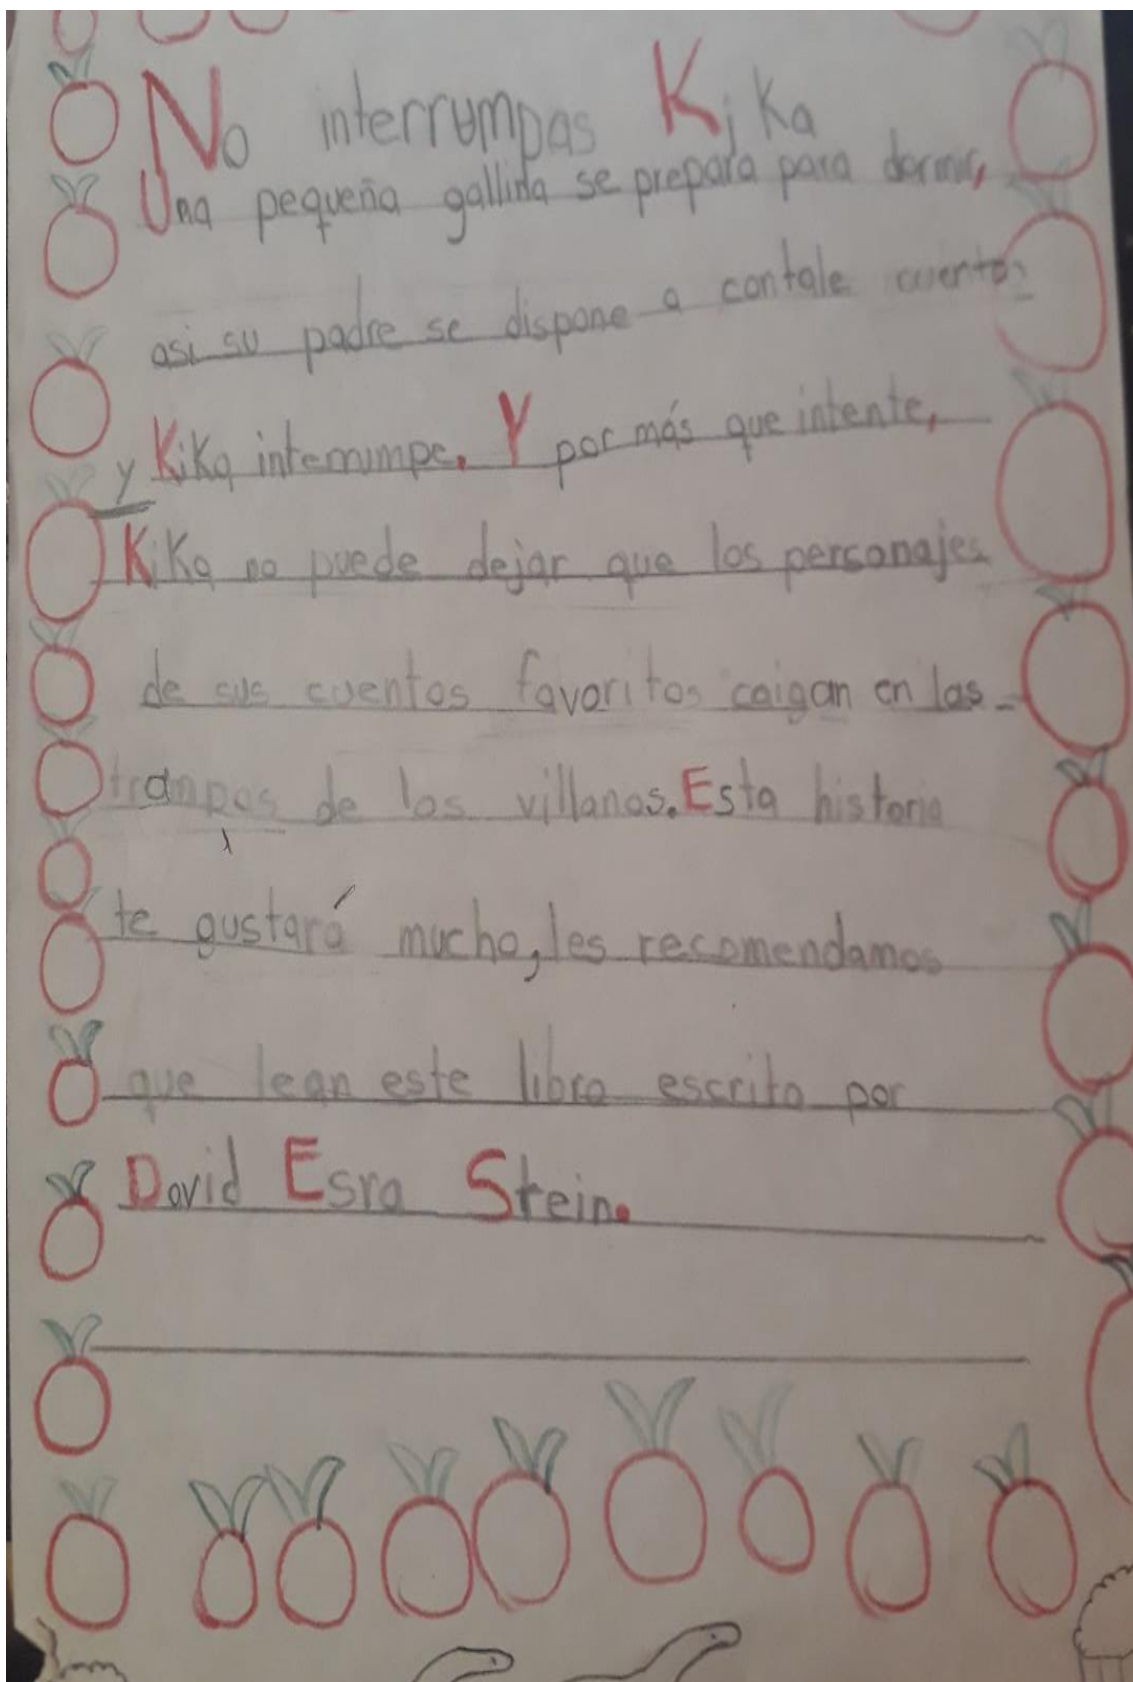 No interrumpas KiKa
Una pequeña gallina se prepara para dormir,
asi su padre se dispone a contale cuento.
y KiKa interrumpe. Y por más que intente,
KiKa no puede dejar que los personajes
de sus cuentos favoritos caigan en las
trampas de los villanos. Esta historia
te gustará mucho, les recomendamos
que lean este libro escrito por
David Esra Stein.